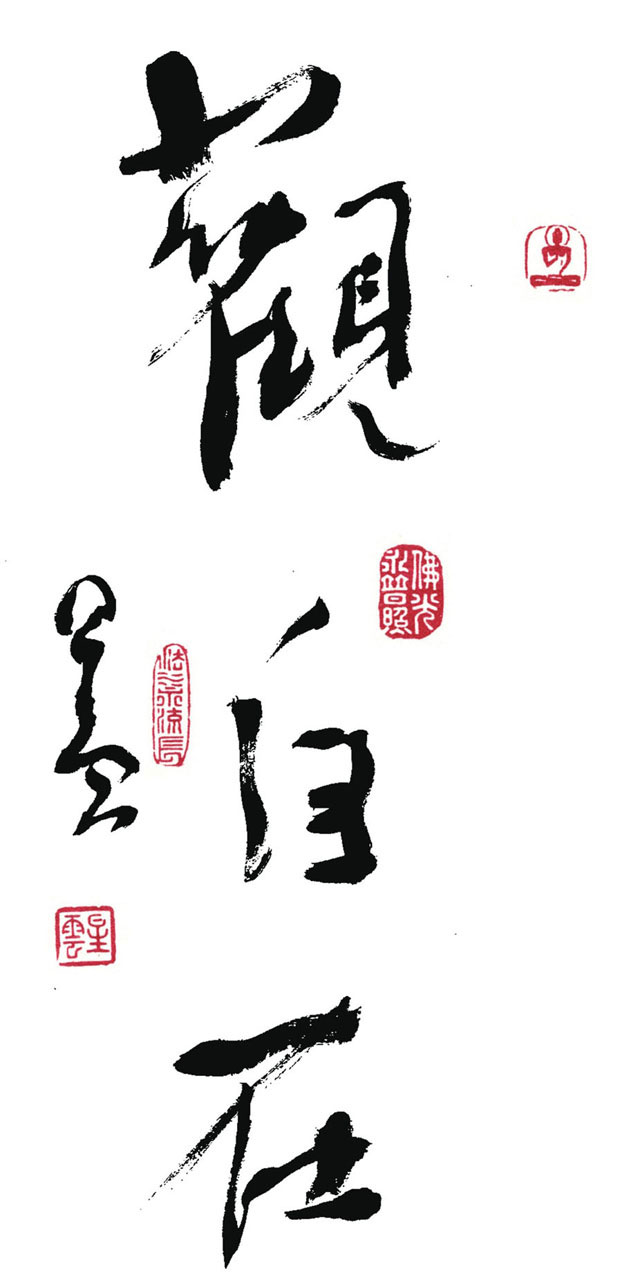 觀自在
佛光永普照
星雲
法水永流長
星雲